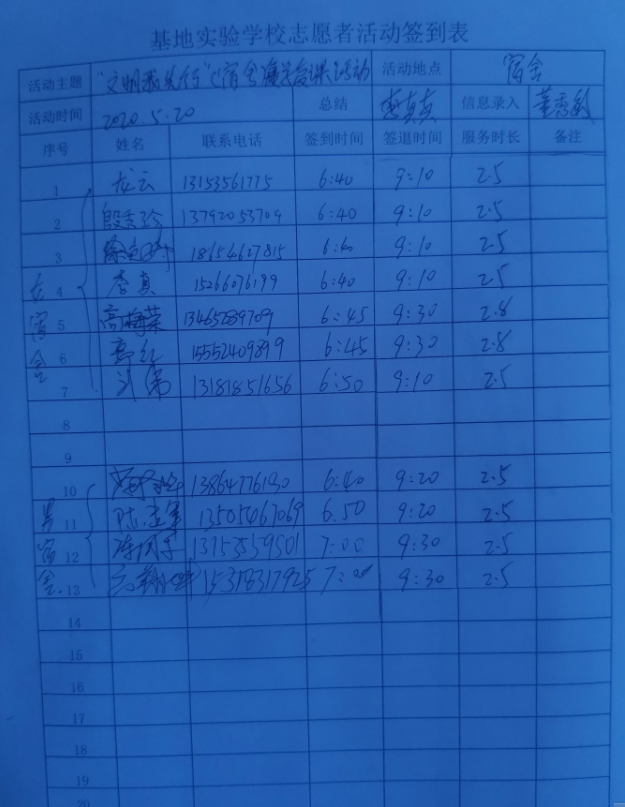 基地实验学校志愿者活动签到表
活动主题 "文明 行" 宿舍 活动 活动地点 宿舍
活动时间 2020.5.20 总结 李真真 信息录入 董秀敏
序号 姓名 联系电话 签到时间 签退时间 服务时长 备注
1 龙云 13153561775 6:40 9:10 2.5
2 殷秀玲 13792053709 6:40 9:10 2.5
3 18154627815 6:40 9:10 2.5
女 4 李真 15266076199 6:40 9:10 2.5
宿 5 高梅荣 13465289709 6:45 9:30 2.8
舍 6 15552409899 6:45 9:30 2.8
7 刘伟 13181851656 6:50 9:10 2.5
8
9
10 13864776130 6:40 9:20 2.5
男 11 陈孟军 13505467069 6.50 9:20 2.5
宿 12 13753559501 7:00 9:30 2.5
舍. 13 15318317925 7:00 9:30 2.5
14
15
16
17
18
19
20